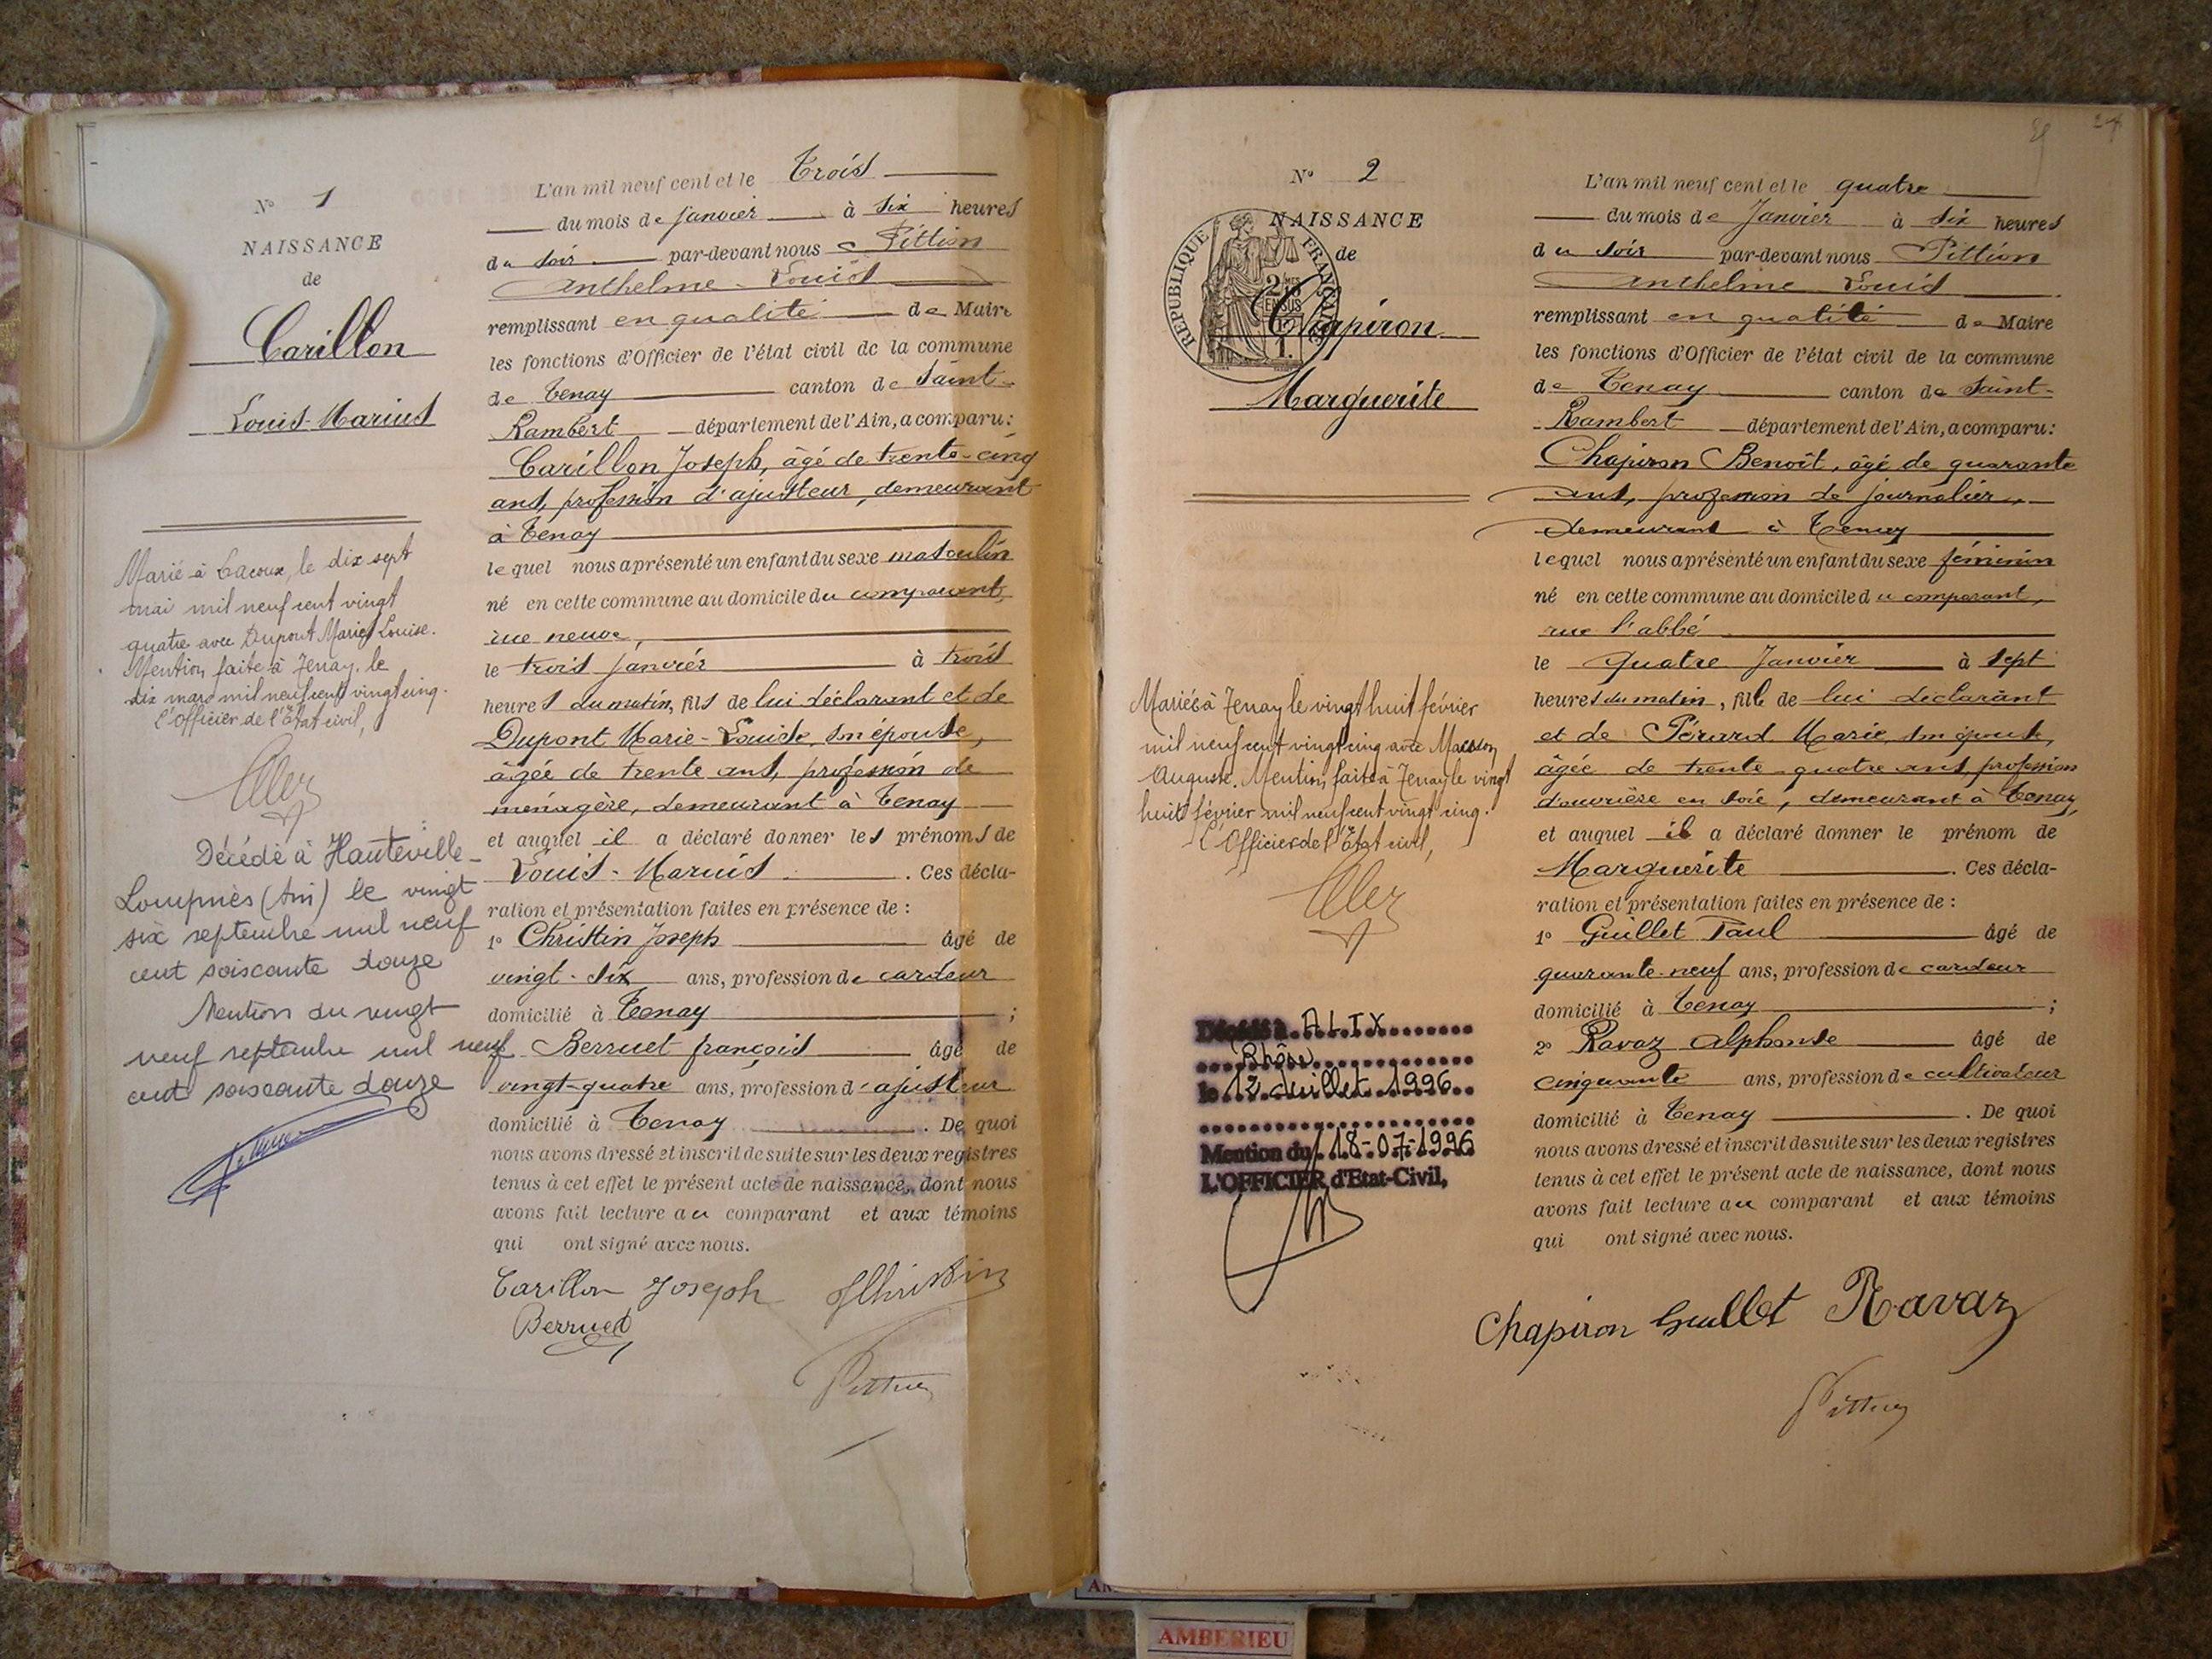 N° 1
NAISSANCE
de
Carillon
Louis-Marius
Marié à Lacoux, le dix sept
mai mil neuf cent vingt
quatre avec Dupont Marie Louise.
Mention faite à Tenay, le
dix mars mil neuf cent vingt cinq.
L'officier de l'État civil,
Décédé à Hauteville-
Lompnès (Ain) le vingt
six septembre mil neuf
cent soixante douze
Mention du vingt
neuf septembre mil neuf
cent soixante douze
L'an mil neuf cent et le Trois
du mois de Janvier à six heures
du soir par-devant nous Pittion
Anthelme Louis
remplissant en qualité de Maire
les fonctions d'Officier de l'état civil de la commune
de Tenay canton de Saint-
Rambert département de l'Ain, a comparu:
Carillon Joseph, âgé de trente-cinq
ans, profession d'ajusteur, demeurant
à Tenay
lequel nous a présenté un enfant du sexe masculin
né en cette commune au domicile du comparant,
rue neuve,
le trois janvier à trois
heures du matin, fils de lui déclarant et de
Dupont Marie-Louise, son épouse,
âgée de trente ans, profession de
ménagère, demeurant à Tenay
et auquel il a déclaré donner les prénoms de
Louis-Marius. Ces décla-
ration et présentation faites en présence de :
1° Christin Joseph âgé de
vingt-six ans, profession de cardeur
domicilié à Tenay ;
Berruet françois âgé de
vingt-quatre ans, profession d'ajusteur
domicilié à Tenay. De quoi
nous avons dressé et inscrit de suite sur les deux registres
tenus à cet effet le présent acte de naissance, dont nous
avons fait lecture au comparant et aux témoins
qui ont signé avec nous.
Carillon Joseph JChristin
Berruet
Pittion
N° 2
NAISSANCE
de
REPUBLIQUE FRANÇAISE
Chapiron
Marguerite
Mariée à Tenay le vingt huit février
mil neuf cent vingt cinq avec
Auguste. Mention faite à Tenay le vingt
huit février mil neuf cent vingt cinq.
L'Officier de l'État civil,
Décédé à ALIX
Rhône
le 12 Juillet 1996
Mention du 18-07-1996
L'OFFICIER d'Etat-Civil,
L'an mil neuf cent et le quatre
du mois de Janvier à six heures
du soir par-devant nous Pittion
Anthelme Louis
remplissant en qualité de Maire
les fonctions d'Officier de l'état civil de la commune
de Tenay canton de Saint-
Rambert département de l'Ain, a comparu:
Chapiron Benoît, âgé de quarante
ans, profession de journalier,
demeurant à Tenay
lequel nous a présenté un enfant du sexe féminin
né en cette commune au domicile du comparant,
rue l'abbé
le quatre Janvier à sept
heures du matin, fille de lui déclarant
et de Marie, son épouse,
âgée de trente-quatre ans, profession
d'ouvrière en soie, demeurant à Tenay,
et auquel il a déclaré donner le prénom de
Marguerite. Ces décla-
ration et présentation faites en présence de :
1° Guillet Paul âgé de
quarante-neuf ans, profession de cardeur
domicilié à Tenay ;
2° Ravaz Alphonse âgé de
cinquante ans, profession de cultivateur
domicilié à Tenay. De quoi
nous avons dressé et inscrit de suite sur les deux registres
tenus à cet effet le présent acte de naissance, dont nous
avons fait lecture au comparant et aux témoins
qui ont signé avec nous.
Chapiron Guillet Ravaz
Pittion
AMBERIEU